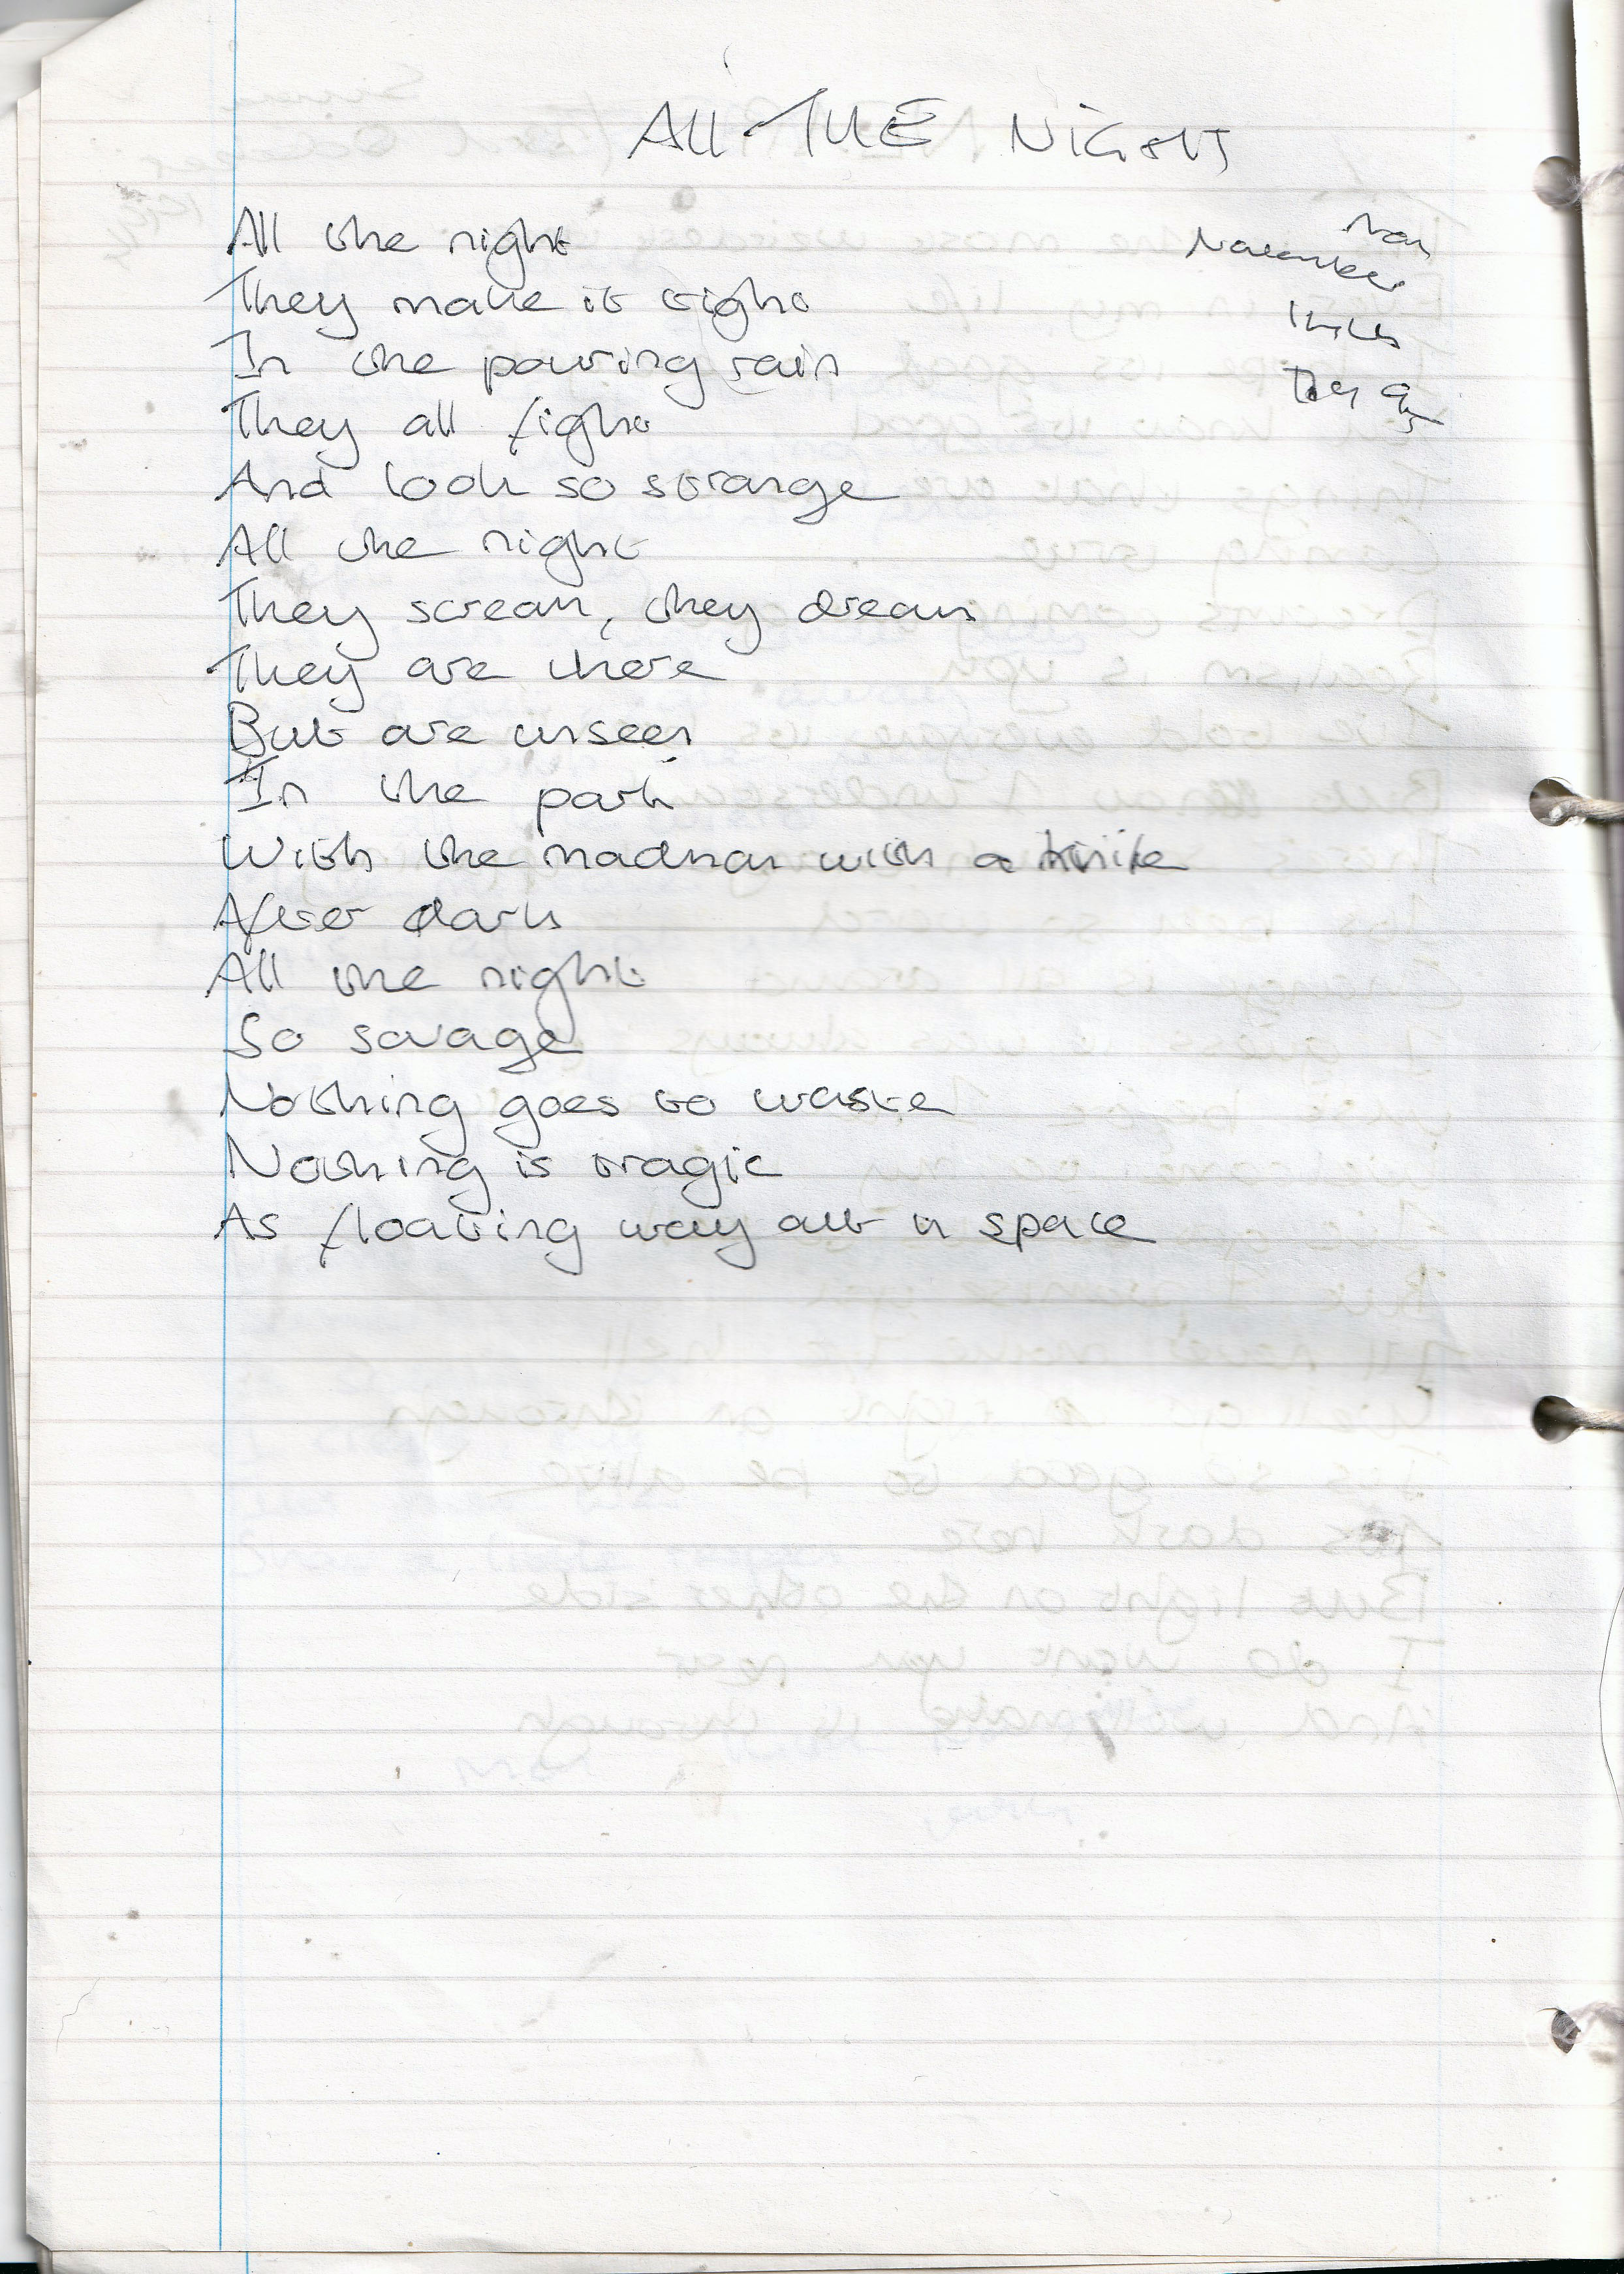 All THE NIGHT
All the night
They make it right
In the pouring rain
They all fight
And look so strange
All the night
They scream, they dream
They are there
But are unseen
In the park
With the madman with a knife
After dark
All the night
So savage
Nothing goes to waste
Nothing is tragic
As floating way out in space
November